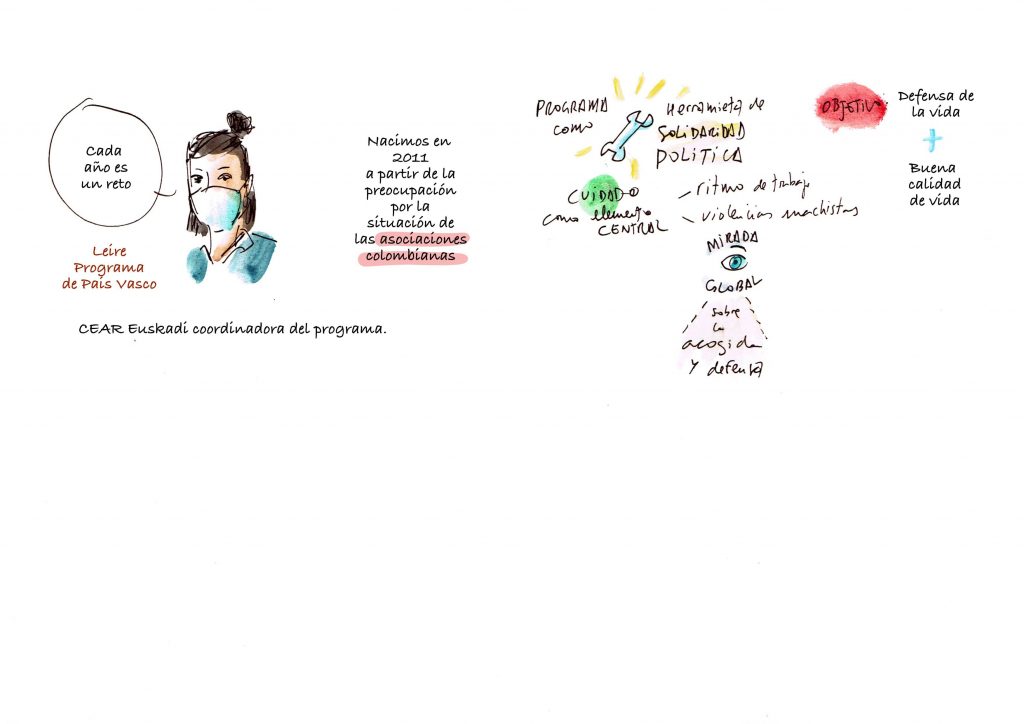 Cada
año es
un reto
Leire
Programa
de País Vasco
Nacimos en
2011
a partir de la
preocupación
por la
situación de
las asociaciones
colombianas
CEAR Euskadi coordinadora del programa.
PROGRAMA
como
Herramieta de
SOLIDARIDAD
POLÍTICA
CUIDADO
como elemento
CENTRAL
ritmo de trabajo
violencias machistas
MIRADA
GLOBAL
sobre
la
acogida
y defensa
OBJETIVO
Defensa de
la vida
+
Buena
calidad
de vida